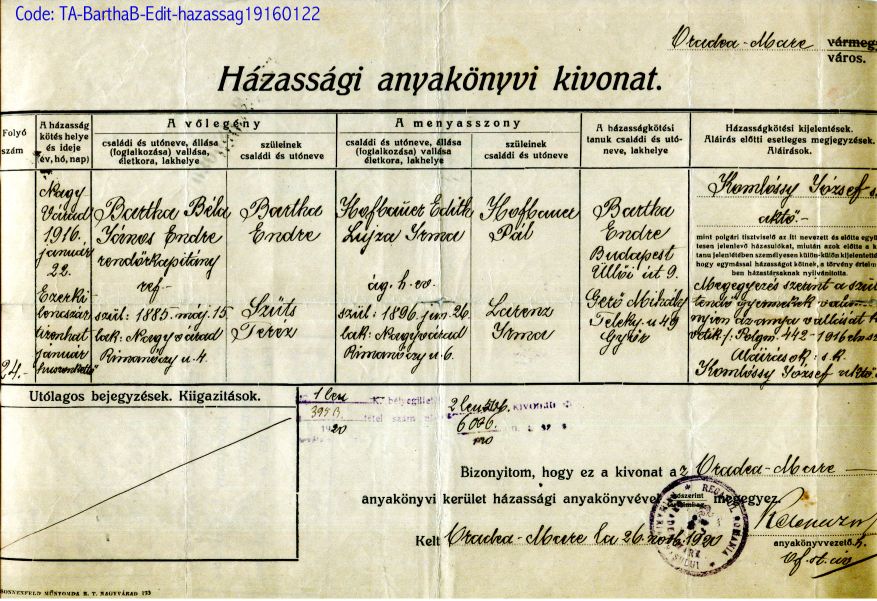 Code: TA-BarthaB-Edit-hazassag19160122
Oradea-Mare vármeg
város.
Házassági anyakönyvi kivonat.
Folyó szám
A házasság kötés helye és ideje (év, hó, nap)
A vőlegény
családi és utóneve, állása (foglalkozása) vallása, életkora, lakhelye
szüleinek családi és utóneve
A menyasszony
családi és utóneve, állása (foglalkozása) vallása életkora, lakhelye
szüleinek családi és utóneve
A házasságkötési tanuk családi és utóneve, lakhelye
Házasságkötési kijelentések.
Aláírás előtti esetleges megjegyzések.
Aláirások.
24.-
Nagy
Várad
1916.
január
22.
Ezerki
lencszáz
tizenhat
január
huszonkettő
Bartha Béla
János Endre
rendőrkapitány
ref.
szül: 1885. máj. 15.
lak: Nagyvárad
Rimanóczy u. 4.
Bartha
Endre
Szüts
Teréz
Hofbauer Edith
Lujza Irma
ág. h. ev.
szül: 1896. jun. 26.
lak: Nagyvárad
Rimanóczy u. 6.
Hofbauer
Pál
Lorenz
Irma
Bartha
Endre
Budapest
Üllői út 9.
Gerő Mihály
Teleky u 49
Győr
Komlóssy József s.
aktő-
mint polgári tisztviselő az itt nevezett és előtte együt
tesen jelenlevő házasulókat, miután azok előtte a k
tanu jelenlétében személyesen külön-külön kijelentettél
hogy egymással házasságot kötnek, a törvény értelm
ben házastársaknak nyilvánította.
Megegyezés szerint a szül
tendő gyermekek valam
nyien az anya vallását k
vetik /: Polgm. 442-1916 eln sz
Aláirások: s.k.
Komlóssy József aktő
Utólagos bejegyzések. Kiigazitások.
1 leu K. bélyegillet
395 B. tétel szám
1920
2 leu KIVONATI
6006.
Bizonyitom, hogy ez a kivonat az Oradea-Mare
anyakönyvi kerület házassági anyakönyvével szószerint megegyez.
Kelt Oradea-Mare la 26 1920
anyakönyvvezető.
Of. st. civ
REGATUL ROMANIA
SONNENFELD MŰNYOMDA R. T. NAGYVÁRAD 193